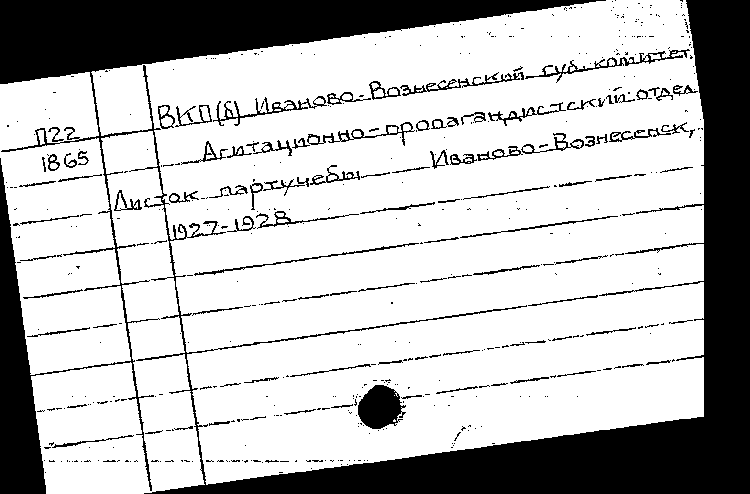 ВКП(б) Иваново-Вознесенский губ. комитет.
П22
1865
Агитационно-пропагандистский отдел
Листок партучебы Иваново-Вознесенск,
1927-1928